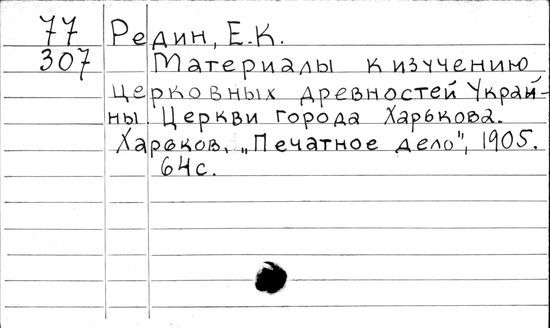 77 Редин, Е.К.
307 Материалы к изучению
церковных древностей Украи-
ны. Церкви города Харькова.
Харьков, "Печатное дело", 1905.
64с.